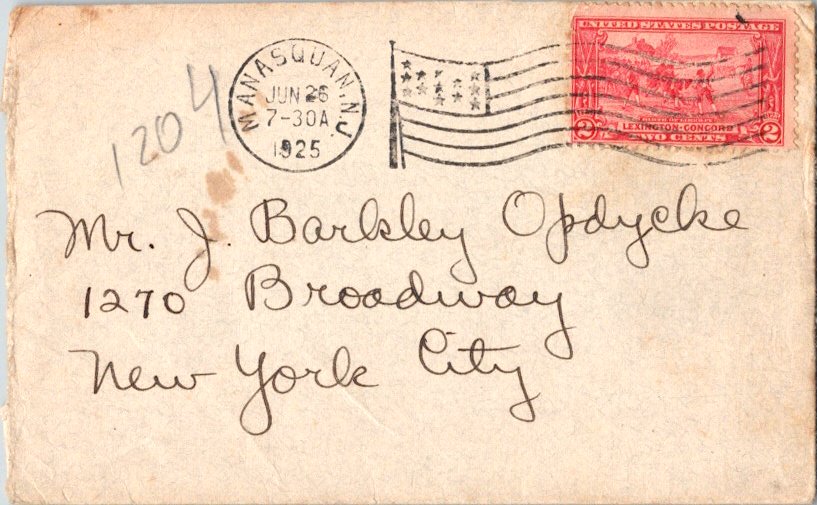 MANASQUAN, N.J.
JUN 26
7-30A
1925
UNITED STATES POSTAGE
LEXINGTON-CONCORD
2 TWO CENTS 2
1204
Mr. J. Barkley Opdycke
1270 Broadway
New York City